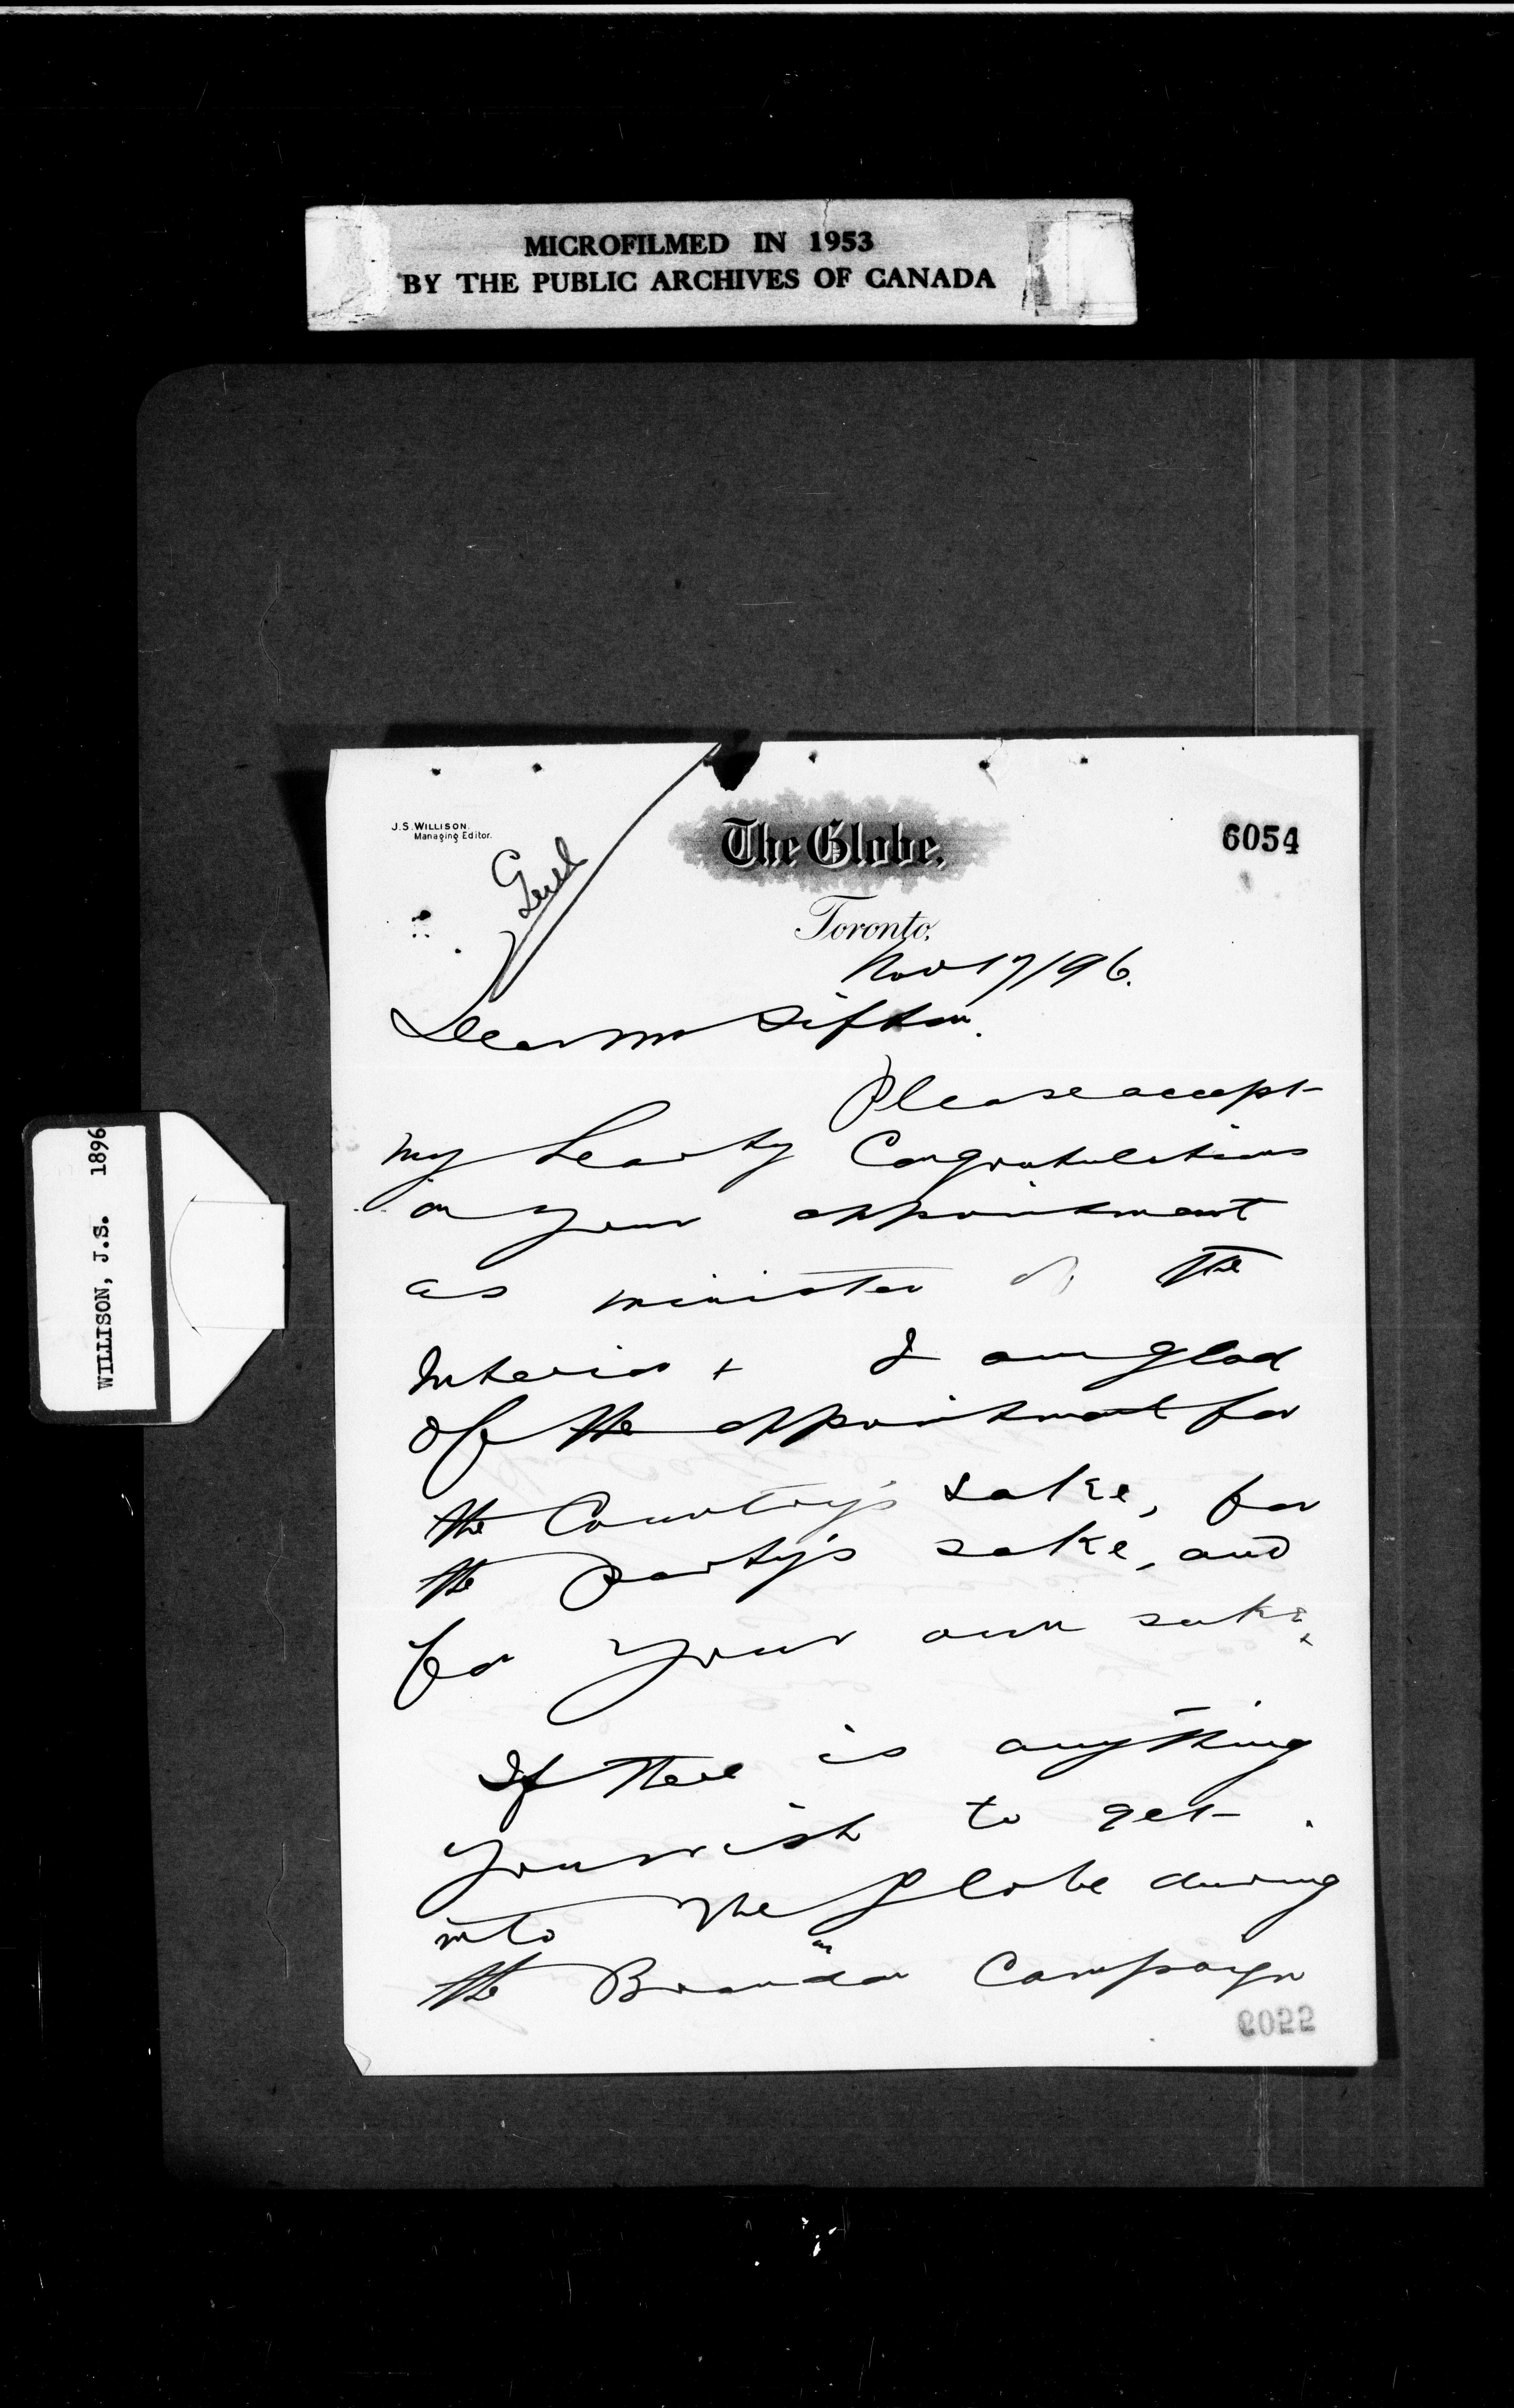 MICROFILMED IN 1953
BY THE PUBLIC ARCHIVES OF CANADA
WILLISON, J.S. 1896
J.S. WILLISON.
Managing Editor.
The Globe,
6054
Toronto,
Nov 17/96.
Dear Mr Sifton.
Please accept
my hearty Congratulations
on your appointment
as minister of the
Interior + I am glad
of the appointment for
the Country's sake, for
the party's sake, and
for your own sake.
If there is anything
you wish to get
into The Globe during
the Brandon Campaign
6022